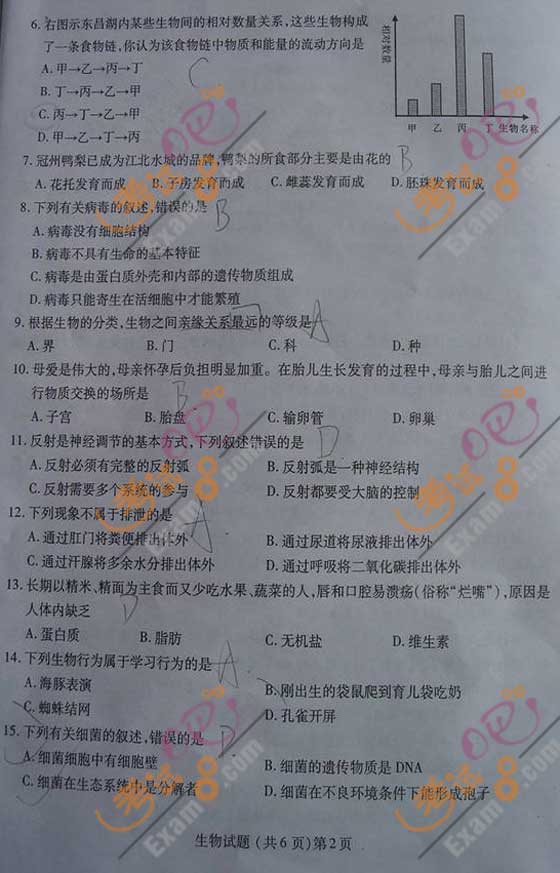 6. 右图示东昌湖内某些生物间的相对数量关系,这些生物构成
了一条食物链,你认为该食物链中物质和能量的流动方向是
A. 甲→乙→丙→丁
B. 丁→丙→乙→甲
C. 丙→丁→乙→甲
D. 甲→丁→乙→丙
C
相对数量
甲 乙 丙 丁 生物名称
7. 冠州鸭梨已成为江北水城的品牌,鸭梨的所食部分主要是由花的 B
A. 花托发育而成 B. 子房发育而成 C. 雌蕊发育而成 D. 胚珠发育而成
8. 下列有关病毒的叙述,错误的是 B
A. 病毒没有细胞结构
B. 病毒不具有生命的基本特征
C. 病毒是由蛋白质外壳和内部的遗传物质组成
D. 病毒只能寄生在活细胞中才能繁殖
9. 根据生物的分类,生物之间亲缘关系最远的等级是 A
A. 界 B. 门 C. 科 D. 种
10. 母爱是伟大的,母亲怀孕后负担明显加重。在胎儿生长发育的过程中,母亲与胎儿之间进
行物质交换的场所是 B
A. 子宫 B. 胎盘 C. 输卵管 D. 卵巢
11. 反射是神经调节的基本方式,下列叙述错误的是 D
A. 反射必须有完整的反射弧 B. 反射弧是一种神经结构
C. 反射需要多个系统的参与 D. 反射都要受大脑的控制
12. 下列现象不属于排泄的是 A
A. 通过肛门将粪便排出体外 B. 通过尿道将尿液排出体外
C. 通过汗腺将多余水分排出体外 D. 通过呼吸将二氧化碳排出体外
13. 长期以精米、精面为主食而又少吃水果、蔬菜的人,唇和口腔易溃疡(俗称“烂嘴”),原因是
人体内缺乏 D
A. 蛋白质 B. 脂肪 C. 无机盐 D. 维生素
14. 下列生物行为属于学习行为的是 A
A. 海豚表演 B. 刚出生的袋鼠爬到育儿袋吃奶
C. 蜘蛛结网 D. 孔雀开屏
15. 下列有关细菌的叙述,错误的是 D
A. 细菌细胞中有细胞壁 B. 细菌的遗传物质是 DNA
C. 细菌在生态系统中是分解者 D. 细菌在不良环境条件下能形成孢子
生物试题 (共 6 页)第 2 页
考试吧
Exam8.com
考试吧
Exam8.com
考试吧
Exam8.com
考试吧
Exam8.com
考试吧
Exam8.com
考试吧
Exam8.com